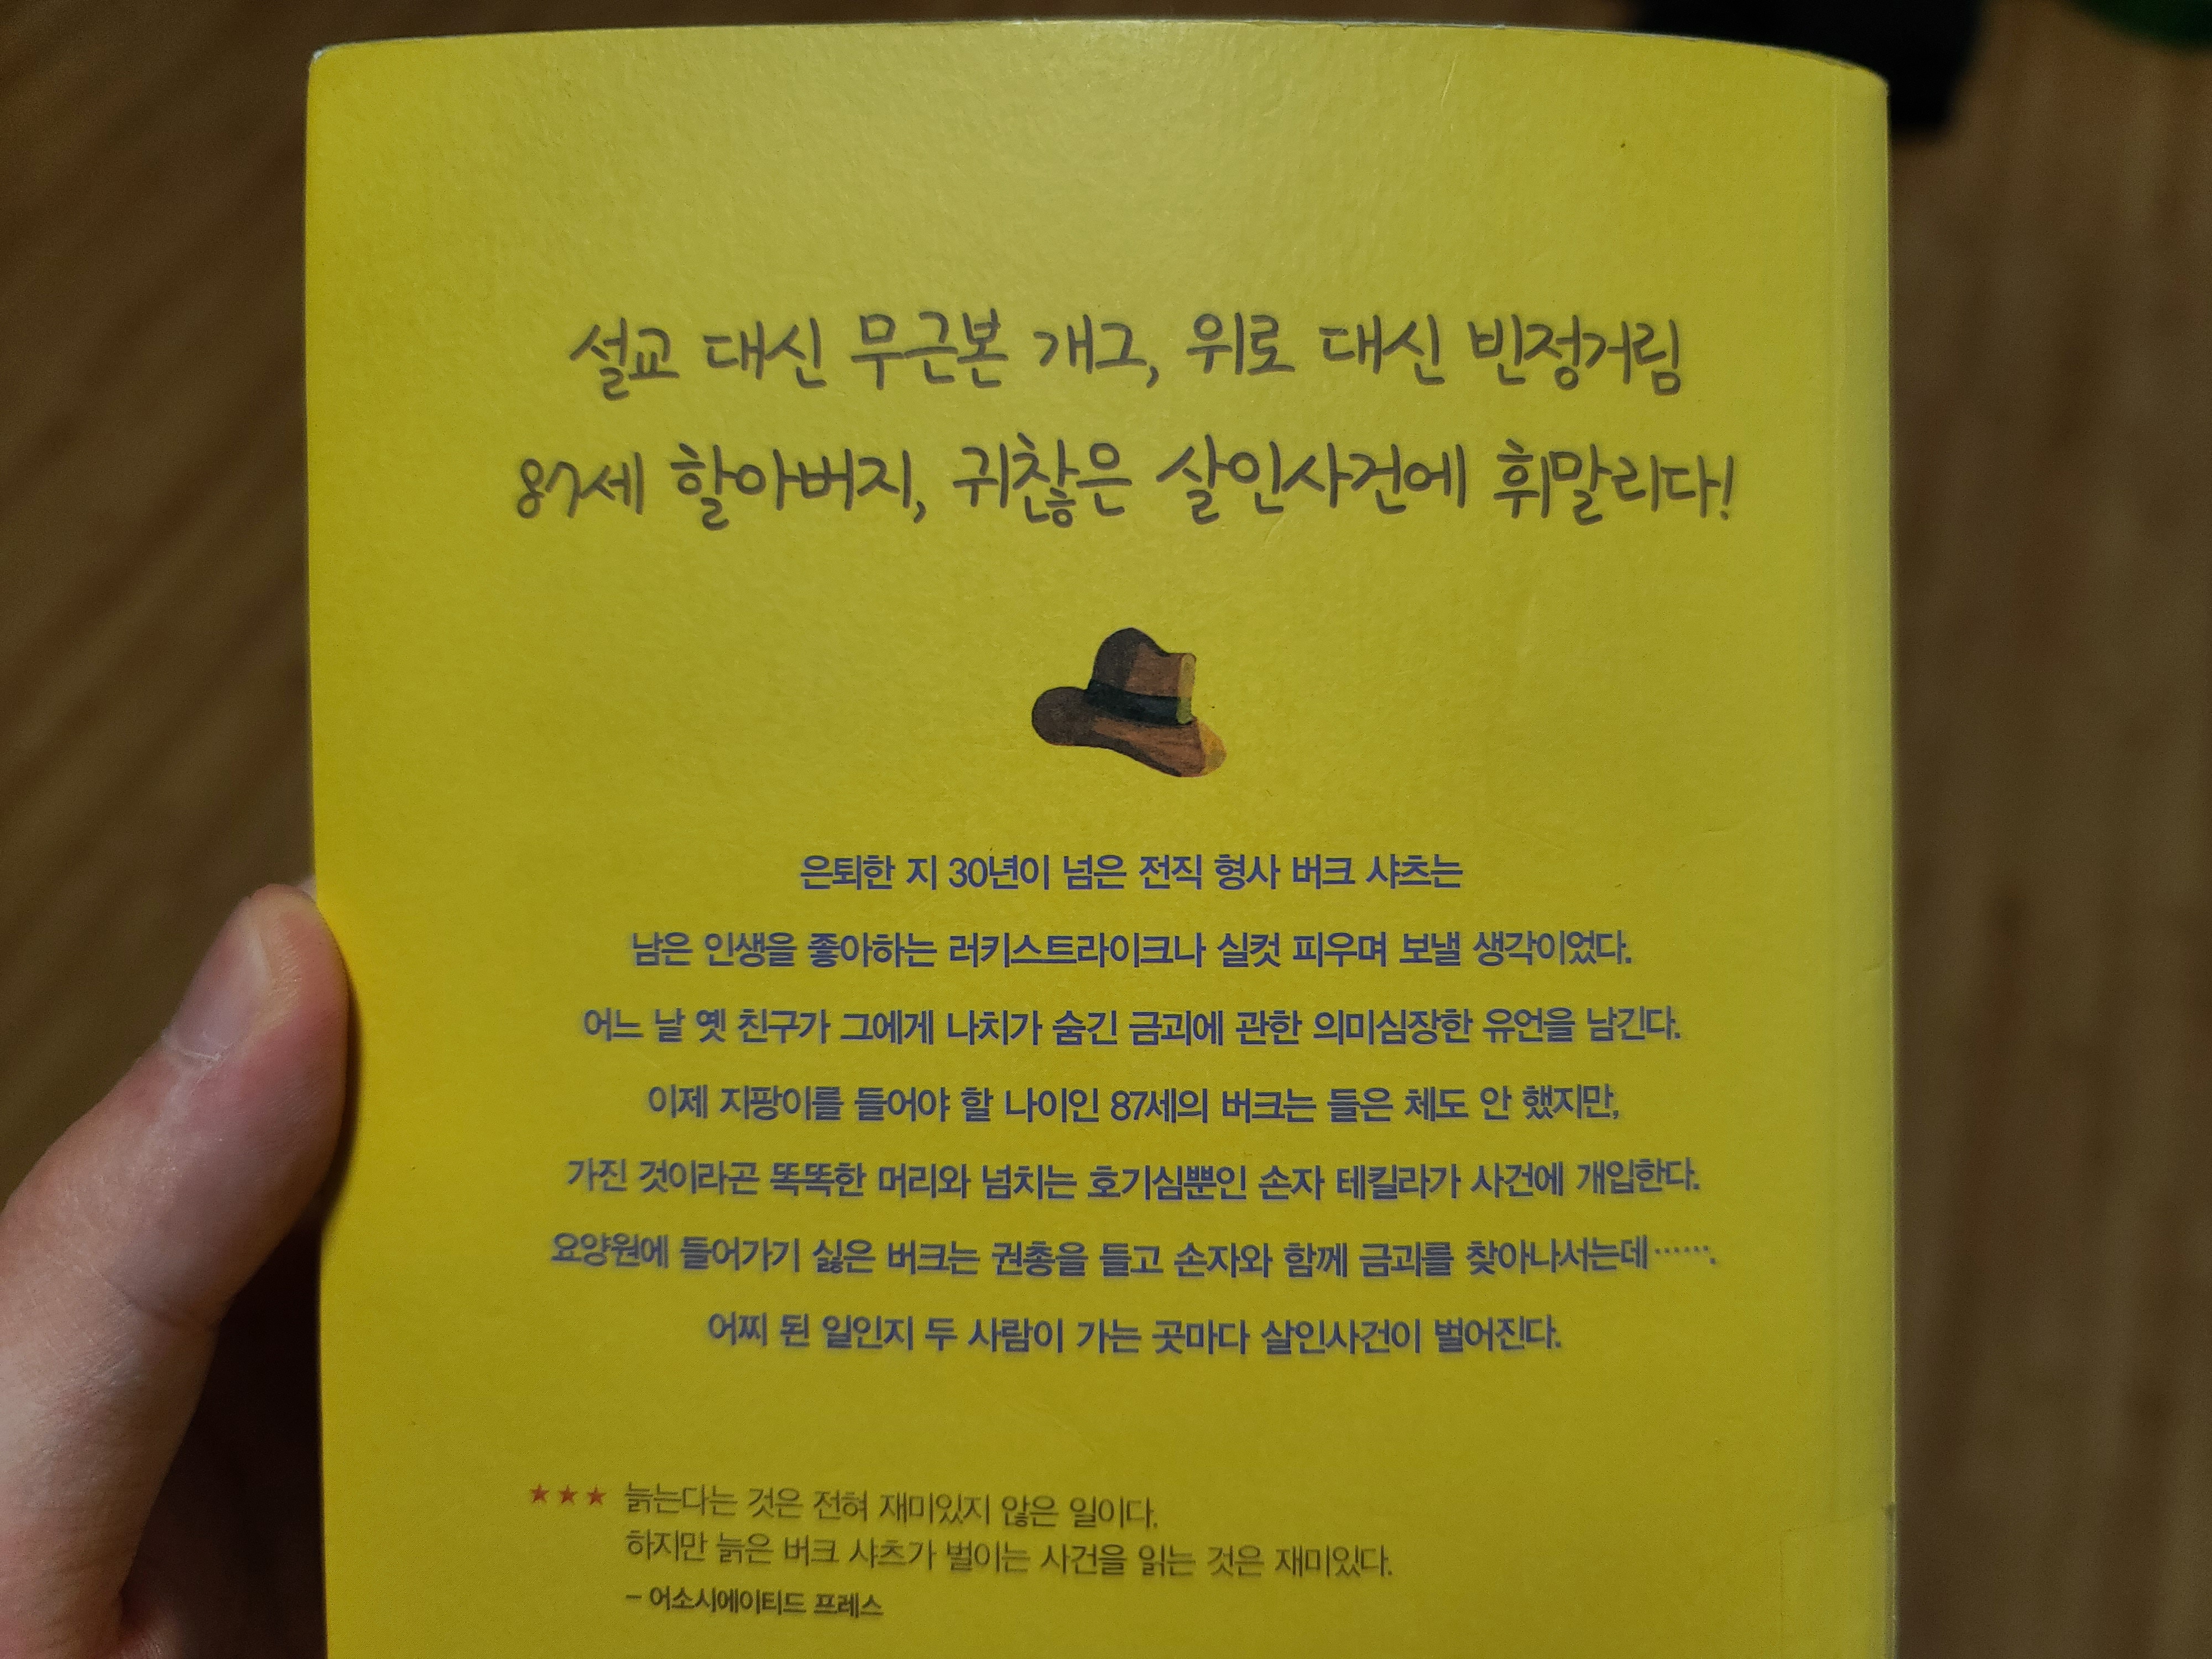 설교 대신 무근본 개그, 위로 대신 빈정거림
87세 할아버지, 귀찮은 살인사건에 휘말리다!
은퇴한 지 30년이 넘은 전직 형사 버크 샤츠는
남은 인생을 좋아하는 러키스트라이크나 실컷 피우며 보낼 생각이었다.
어느 날 옛 친구가 그에게 나치가 숨긴 금괴에 관한 의미심장한 유언을 남긴다.
이제 지팡이를 들어야 할 나이인 87세의 버크는 들은 체도 안 했지만,
가진 것이라곤 똑똑한 머리와 넘치는 호기심뿐인 손자 테킬라가 사건에 개입한다.
요양원에 들어가기 싫은 버크는 권총을 들고 손자와 함께 금괴를 찾아나서는데…….
어찌 된 일인지 두 사람이 가는 곳마다 살인사건이 벌어진다.
★★★ 늙는다는 것은 전혀 재미있지 않은 일이다.
하지만 늙은 버크 샤츠가 벌이는 사건을 읽는 것은 재미있다.
– 어소시에이티드 프레스